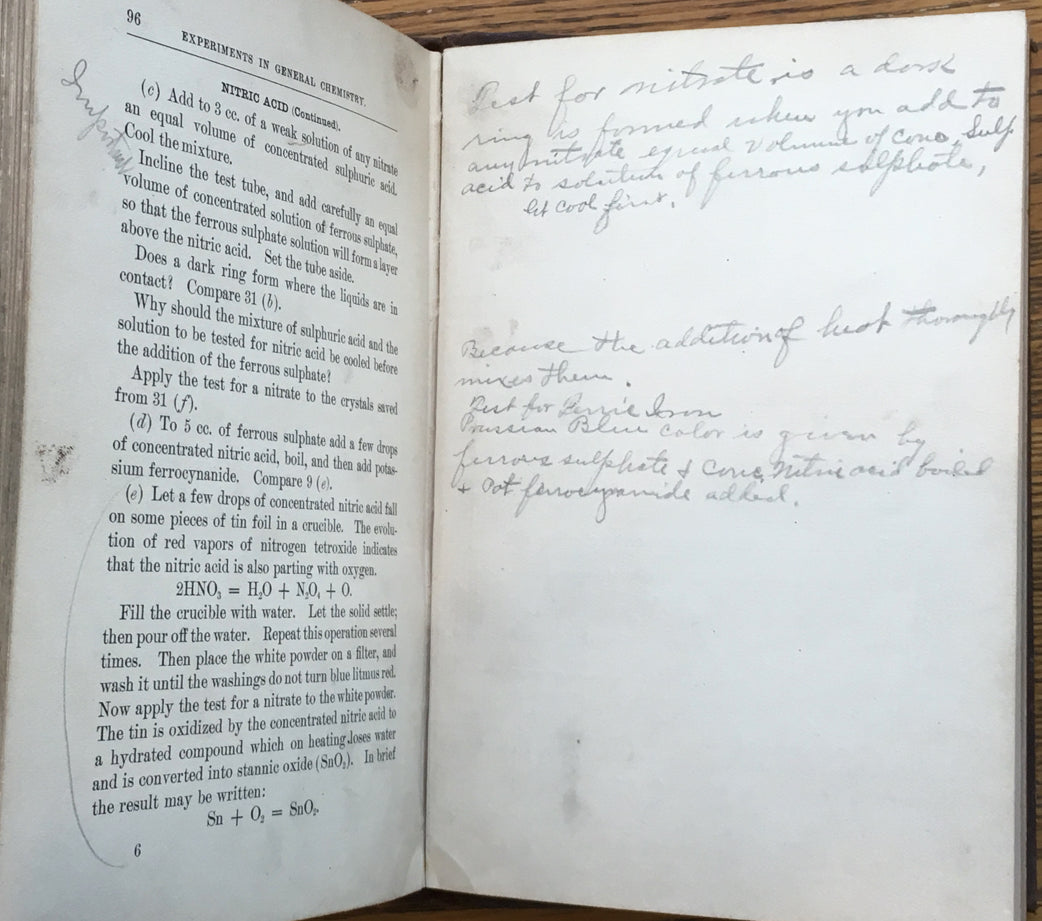 96
EXPERIMENTS IN GENERAL CHEMISTRY.
NITRIC ACID (Continued).
(c) Add to 3 cc. of a weak solution of any nitrate
an equal volume of concentrated sulphuric acid.
Cool the mixture.
Important
Incline the test tube, and add carefully an equal
volume of concentrated solution of ferrous sulphate,
so that the ferrous sulphate solution will form a layer
above the nitric acid. Set the tube aside.
Does a dark ring form where the liquids are in
contact? Compare 31 (b).
Why should the mixture of sulphuric acid and the
solution to be tested for nitric acid be cooled before
the addition of the ferrous sulphate?
Apply the test for a nitrate to the crystals saved
from 31 (f).
(d) To 5 cc. of ferrous sulphate add a few drops
of concentrated nitric acid, boil, and then add potas-
sium ferrocynanide. Compare 9 (e).
(e) Let a few drops of concentrated nitric acid fall
on some pieces of tin foil in a crucible. The evolu-
tion of red vapors of nitrogen tetroxide indicates
that the nitric acid is also parting with oxygen.
2HNO₃ = H₂O + N₂O₄ + O.
Fill the crucible with water. Let the solid settle;
then pour off the water. Repeat this operation several
times. Then place the white powder on a filter, and
wash it until the washings do not turn blue litmus red.
Now apply the test for a nitrate to the white powder.
The tin is oxidized by the concentrated nitric acid to
a hydrated compound which on heating loses water
and is converted into stannic oxide (SnO₂). In brief
the result may be written:
Sn + O₂ = SnO₂.
6
Test for nitrate is a dark
ring is formed when you add to
any nitrate equal volume of conc. Sulp
acid to solution of ferrous sulphate,
let cool first.
Because the addition of heat thoroughly
mixes them.
Test for Ferric Iron
Prussian Blue color is given by
ferrous sulphate & conc. nitric acid boiled
& Pot ferrocyanide added.